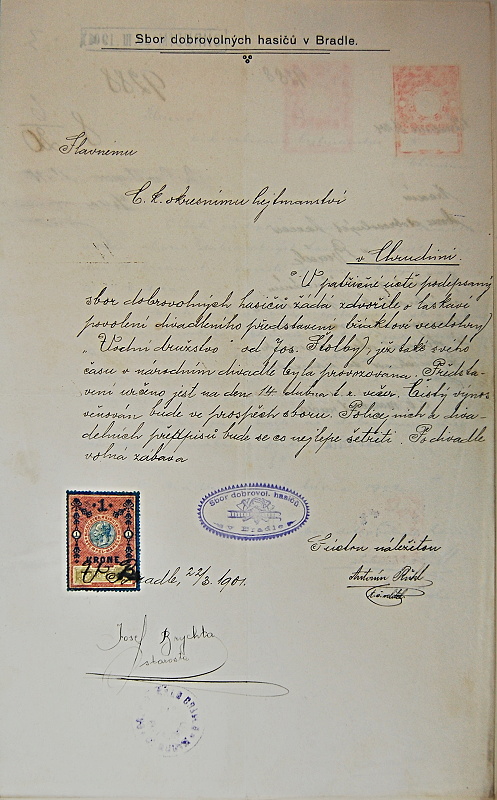 Sbor dobrovolných hasičů v Bradle.
9288
Slavnému
C. k. okresnímu hejtmanství
v Chrudimi.
V patřičné úctě podepsaný
sbor dobrovolných hasičů žádá zdvořile o laskavé
povolení divadleního představení (tříaktové veselohry)
„Vodní družstvo" od Jos. Štolby, jež také svého
času v národním divadle byla provozována. Představení
určeno jest na den 14 dubna t. r. večer. Čistý výnos
věnován bude ve prospěch sboru. Policejních a divadelních
předpisů bude se co nejlépe šetřiti. Po divadle
volná zábava
Sbor dobrovol. hasičů
v Bradle
1
1 1
KRONE
S úctou náležitou
V Bradle, 22/3. 1901.
Antonín Rühl
Josef Brychta
starosta